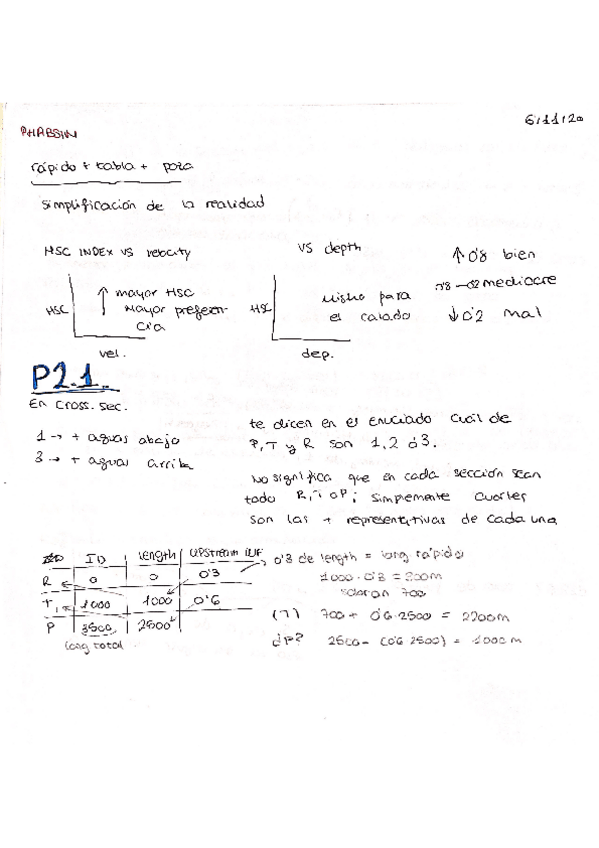 6/11/20
PHABSIM
rápido + tabla + poza
simplificación de la realidad
HSC INDEX VS velocity
VS depth
↑ 0'8 bien
0'8 - 0'2 mediocre
↓ 0'2 mal
HSC ↑ mayor HSC
Mayor preferen-
cia
vel.
HSC Mismo para
el calado
dep.
P2.1.
En cross. sec.
1 → + aguas abajo
3 → + aguas arriba
te dicen en el enuciado cuál de
P, T y R son 1, 2 ó 3.
No significa que en cada sección sean
todo R, T o P; simplemente cuales
son las + representativas de cada una
ID | length | UPstream WF
R 0 | 0 | 0'3
T 1000 | 1000 | 0'6
P 3500 | 2500
long total
0'3 de length = long rápido
1000 · 0'3 = 300m
sobran 700
(T) 700 + 0'6·2500 = 2200m
¿P? 2500 - (0'6·2500) = 1000m